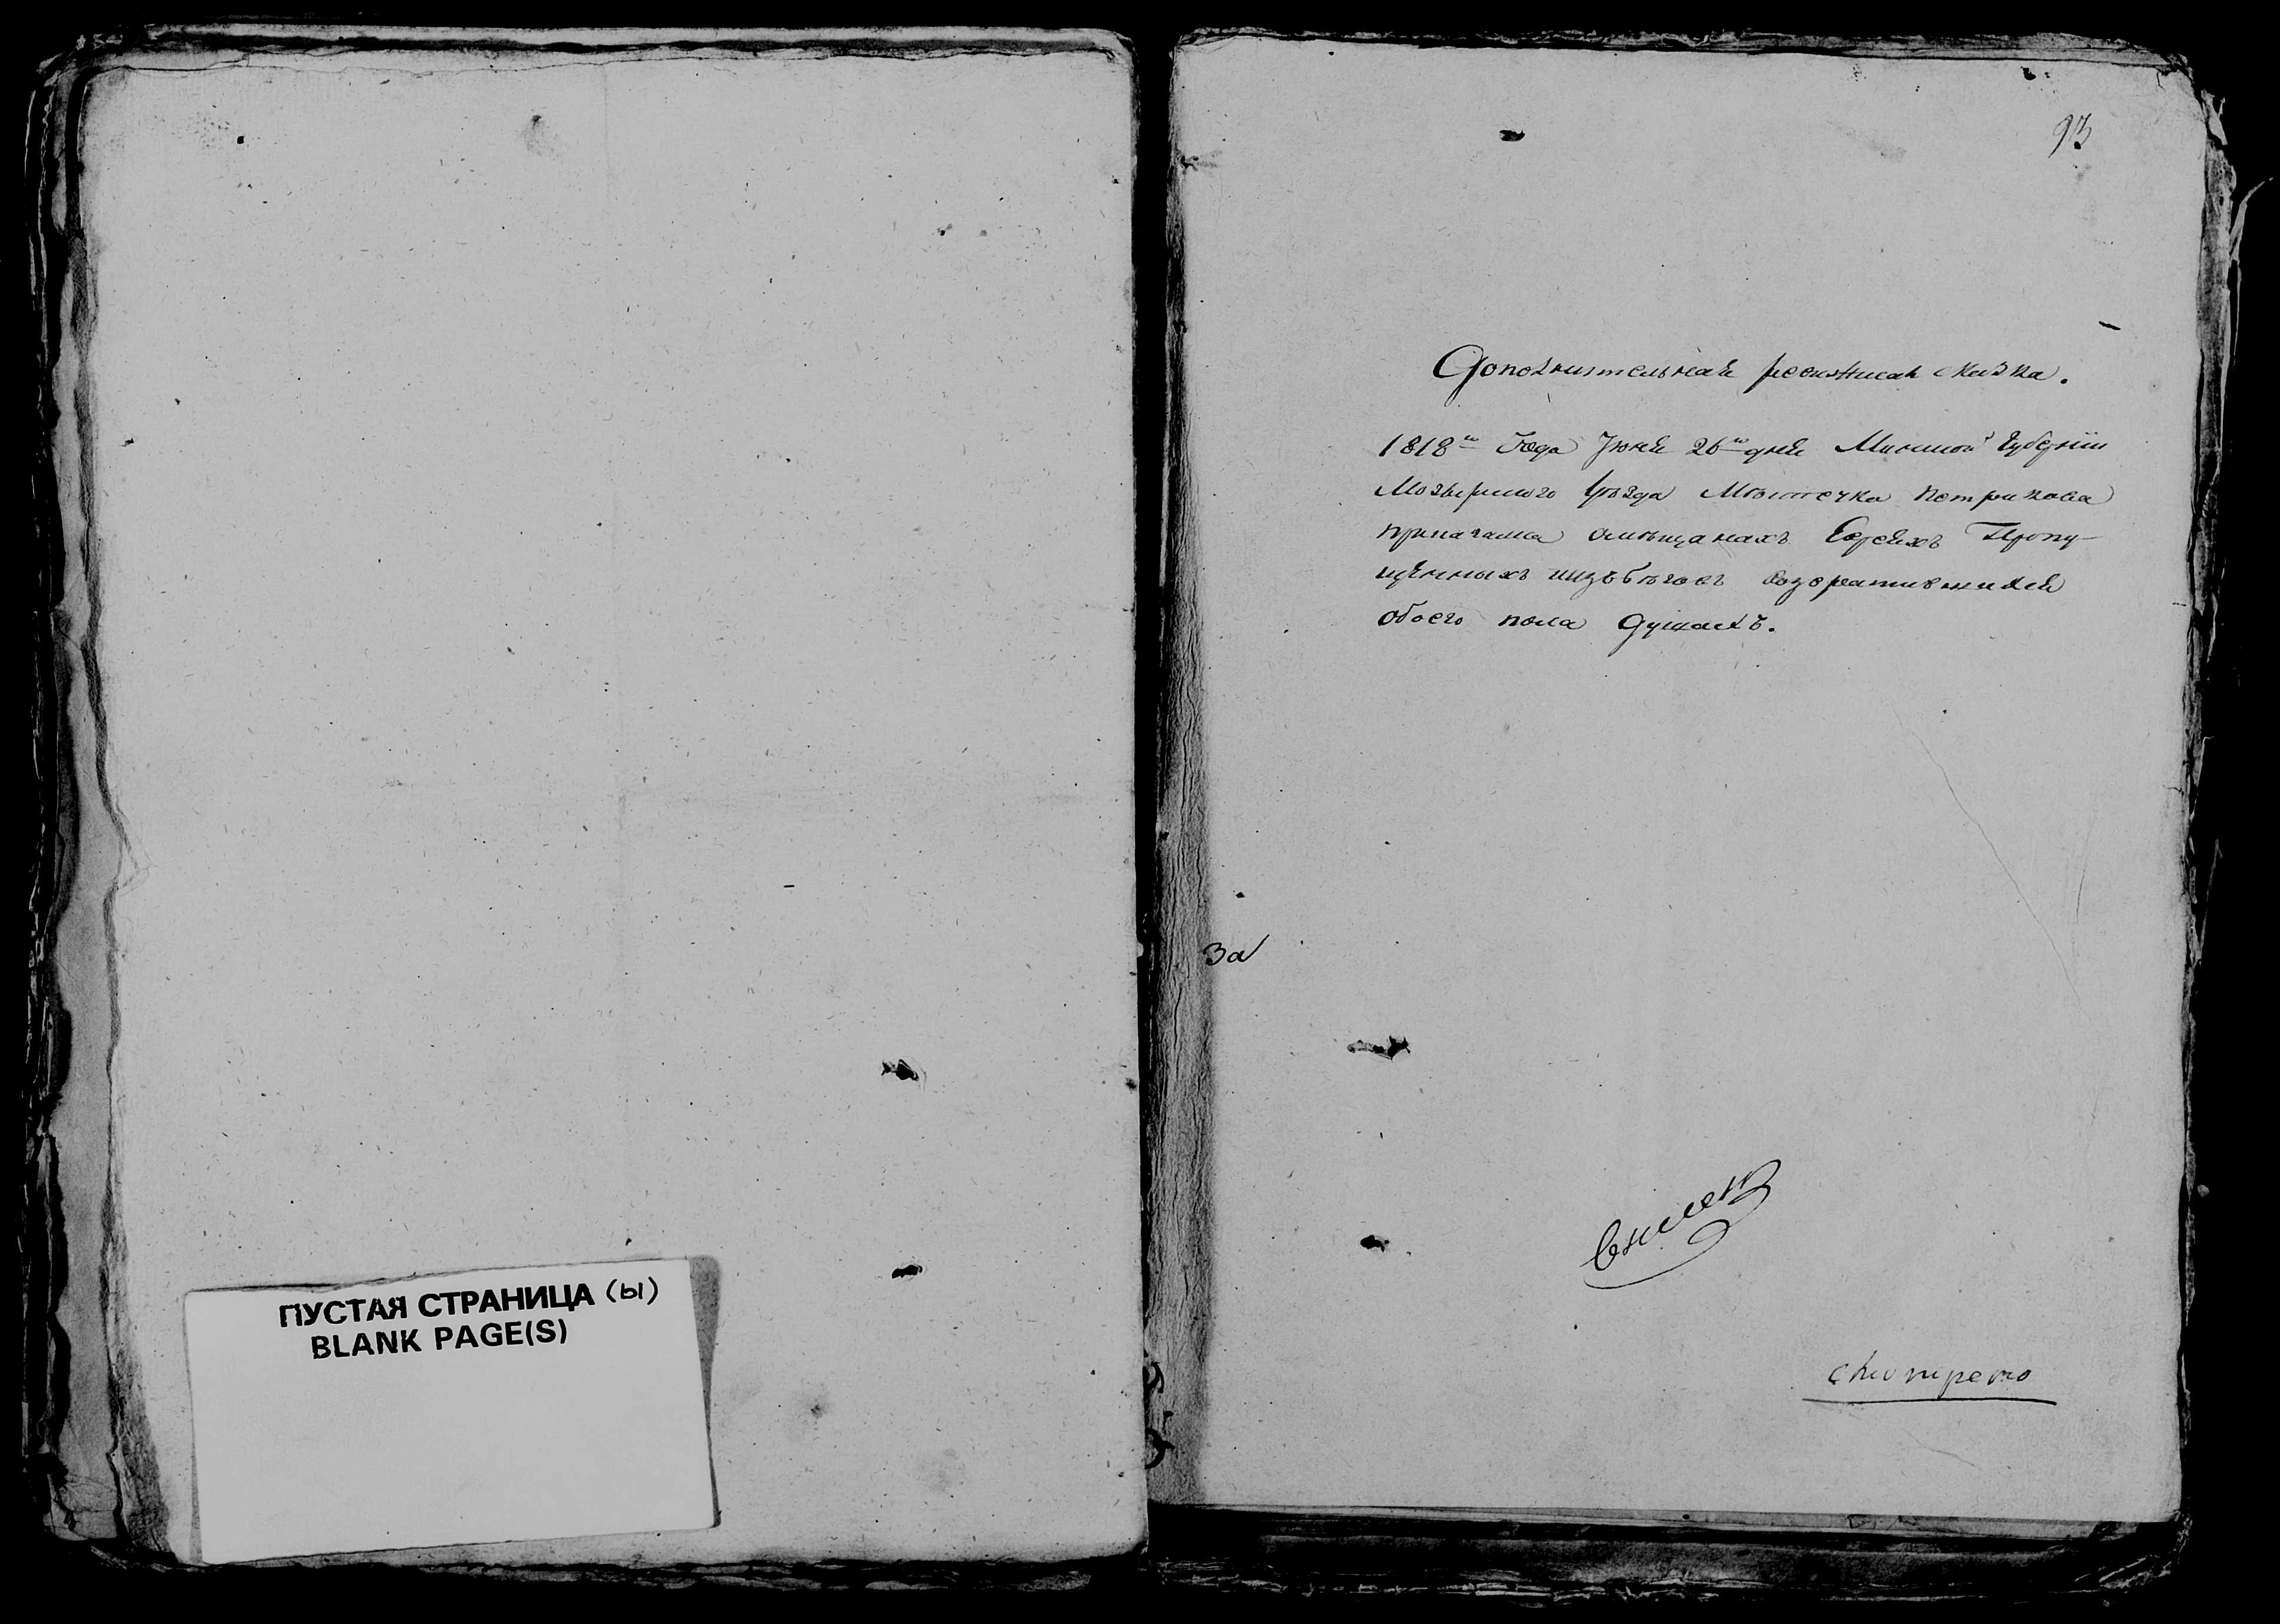 ПУСТАЯ СТРАНИЦА (Ы)
BLANK PAGE(S)
93
Дополнительная ревижская скаска.
1818го Года Июня 26го дня Минской Губерніи
Мозырского уѣзда Мѣстечка Петрикова
омѣщанахъ Евреяхъ Пропу-
щенныхъ изъ бѣговъ возвратившихся
обоего пола душахъ.
За